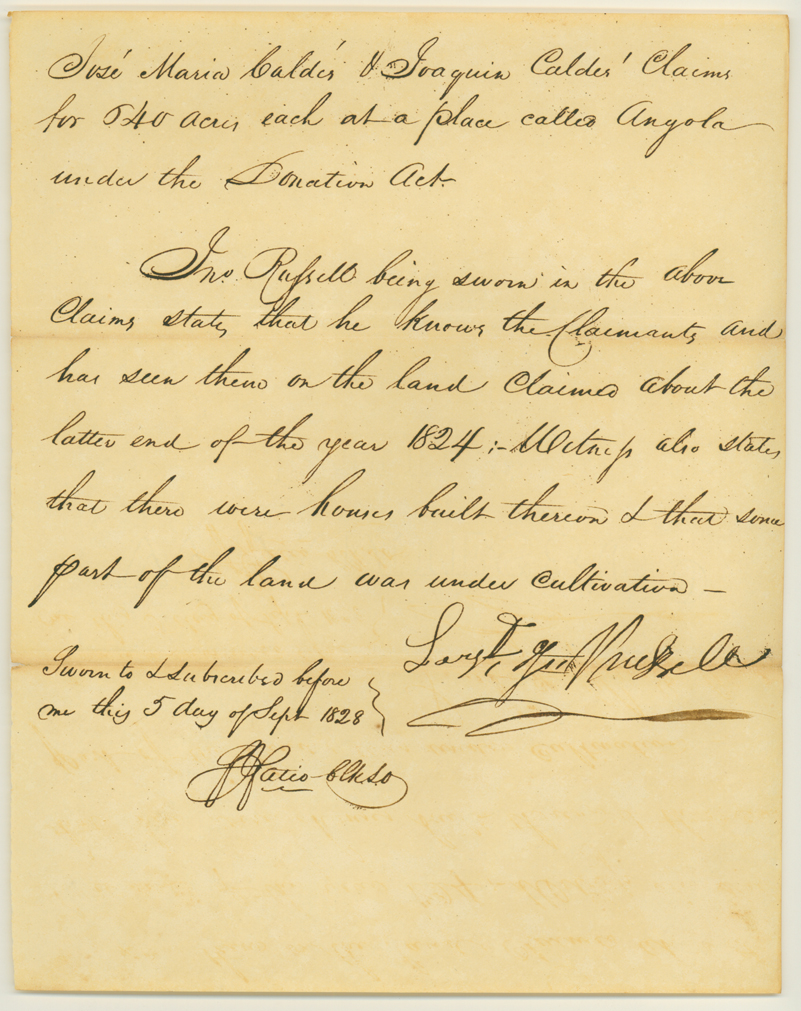 José Maria Caldés & Joaquin Caldes' Claims
for 640 acres each at a place called Angola
under the Donation Act.
Jno. Russell being sworn in the above
Claims states that he knows the Claimants and
has seen them on the land claimed about the
latter end of the year 1824 ;- Witness also states
that there were houses built thereon & that some
part of the land was under cultivation -
Russell
Sworn to & subscribed before
me this 5 day of Sept 1828